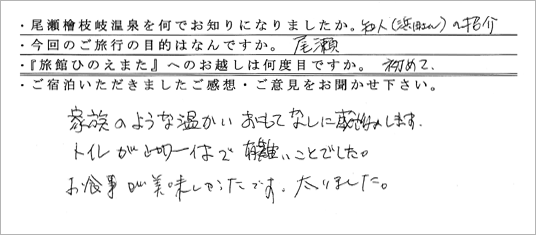 ・尾瀬檜枝岐温泉を何でお知りになりましたか。知人（浜田さん）の紹介
・今回のご旅行の目的はなんですか。 尾瀬
・『旅館ひのえまた』へのお越しは何度目ですか。 初めて、
・ご宿泊いただきましたご感想・ご意見をお聞かせ下さい。
家族のような温かいおもてなしに感謝します。
トイレが
ことでした。
お食事が美味しかったです。太りました。